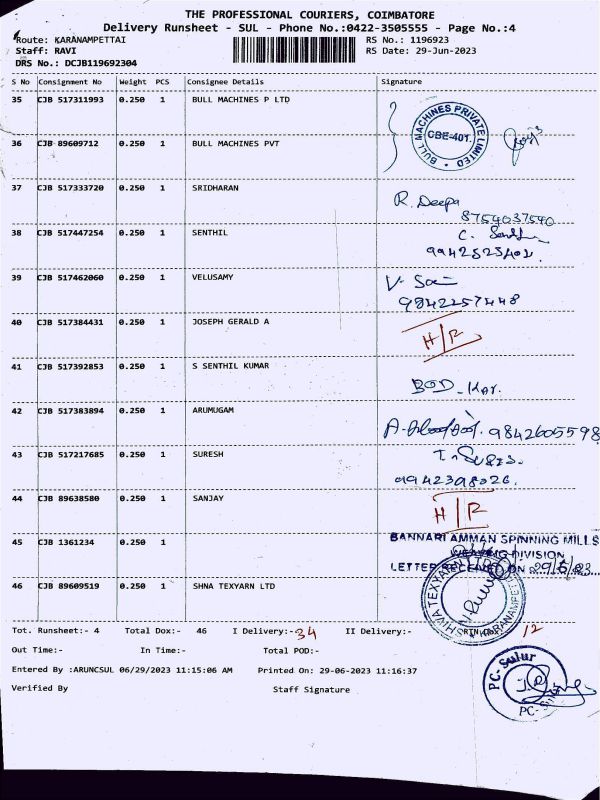 THE PROFESSIONAL COURIERS, COIMBATORE
Delivery Runsheet - SUL - Phone No.:0422-3505555 - Page No.:4
Route: KARANAMPETTAI RS No.: 1196923
Staff: RAVI RS Date: 29-Jun-2023
DRS No.: DCJB119692304
S No Consignment No Weight PCS Consignee Details Signature
35 CJB 517311993 0.250 1 BULL MACHINES P LTD
BULL MACHINES PRIVATE LIMITED
CBE-401.
36 CJB 89609712 0.250 1 BULL MACHINES PVT
37 CJB 517333720 0.250 1 SRIDHARAN R. Deepa
8754037540
38 CJB 517447254 0.250 1 SENTHIL C.
39 CJB 517462060 0.250 1 VELUSAMY
9842257448
40 CJB 517384431 0.250 1 JOSEPH GERALD A H/R
41 CJB 517392853 0.250 1 S SENTHIL KUMAR
42 CJB 517383894 0.250 1 ARUMUGAM 9842605598
43 CJB 517217685 0.250 1 SURESH
9942398026.
44 CJB 89638580 0.250 1 SANJAY H/R
45 CJB 1361234 0.250 1 BANNARI AMMAN SPINNING MILLS
WEAVING DIVISION
LETTER RECEIVED ON
46 CJB 89609519 0.250 1 SHNA TEXYARN LTD
Tot. Runsheet:- 4 Total Dox:- 46 I Delivery:- 34 II Delivery:- RTN Dox: 12
Out Time:- In Time:- Total POD:-
Entered By :ARUNCSUL 06/29/2023 11:15:06 AM Printed On: 29-06-2023 11:16:37
Verified By Staff Signature
PC-Sulur